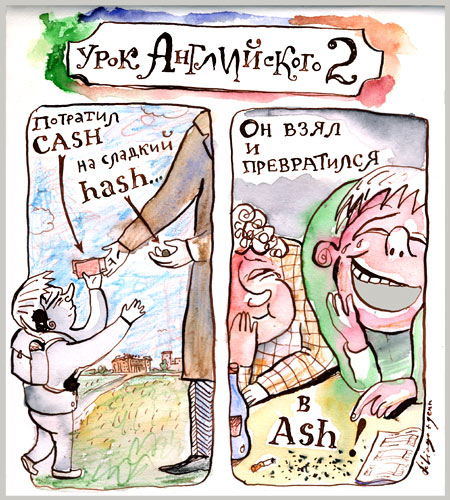 Урок Английского 2
Потратил
CASH
на сладкий
hash...
Он взял
и
превратился
в
Ash!